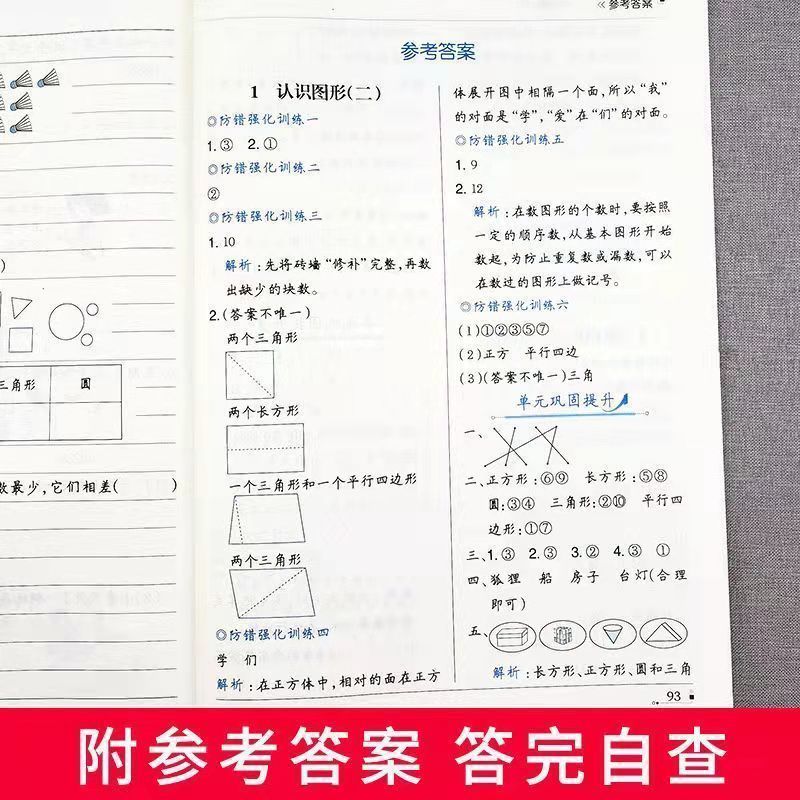 << 参考答案
参考答案
1 认识图形(二)
◎防错强化训练一
1.③ 2.①
◎防错强化训练二
②
◎防错强化训练三
1.10
解析:先将砖墙“修补”完整,再数
出缺少的块数。
2.(答案不唯一)
两个三角形
两个长方形
一个三角形和一个平行四边形
两个三角形
◎防错强化训练四
学 们
解析:在正方体中,相对的面在正方
体展开图中相隔一个面,所以“我”
的对面是“学”,“爱”在“们”的对面。
◎防错强化训练五
1.9
2.12
解析:在数图形的个数时,要按照
一定的顺序数,从基本图形开始
数起,为防止重复数或漏数,可以
在数过的图形上做记号。
◎防错强化训练六
(1)①②③⑤⑦
(2)正方 平行四边
(3)(答案不唯一)三角
单元巩固提升
一、
二、正方形:⑥⑨ 长方形:⑤⑧
圆:③④ 三角形:②⑩ 平行四
边形:①⑦
三、1.③ 2.③ 3.② 4.③ ①
四、狐狸 船 房子 台灯(合理
即可)
五、
解析:长方形、正方形、圆和三角
93
)
三角形 圆
数最少,它们相差( )
附参考答案 答完自查